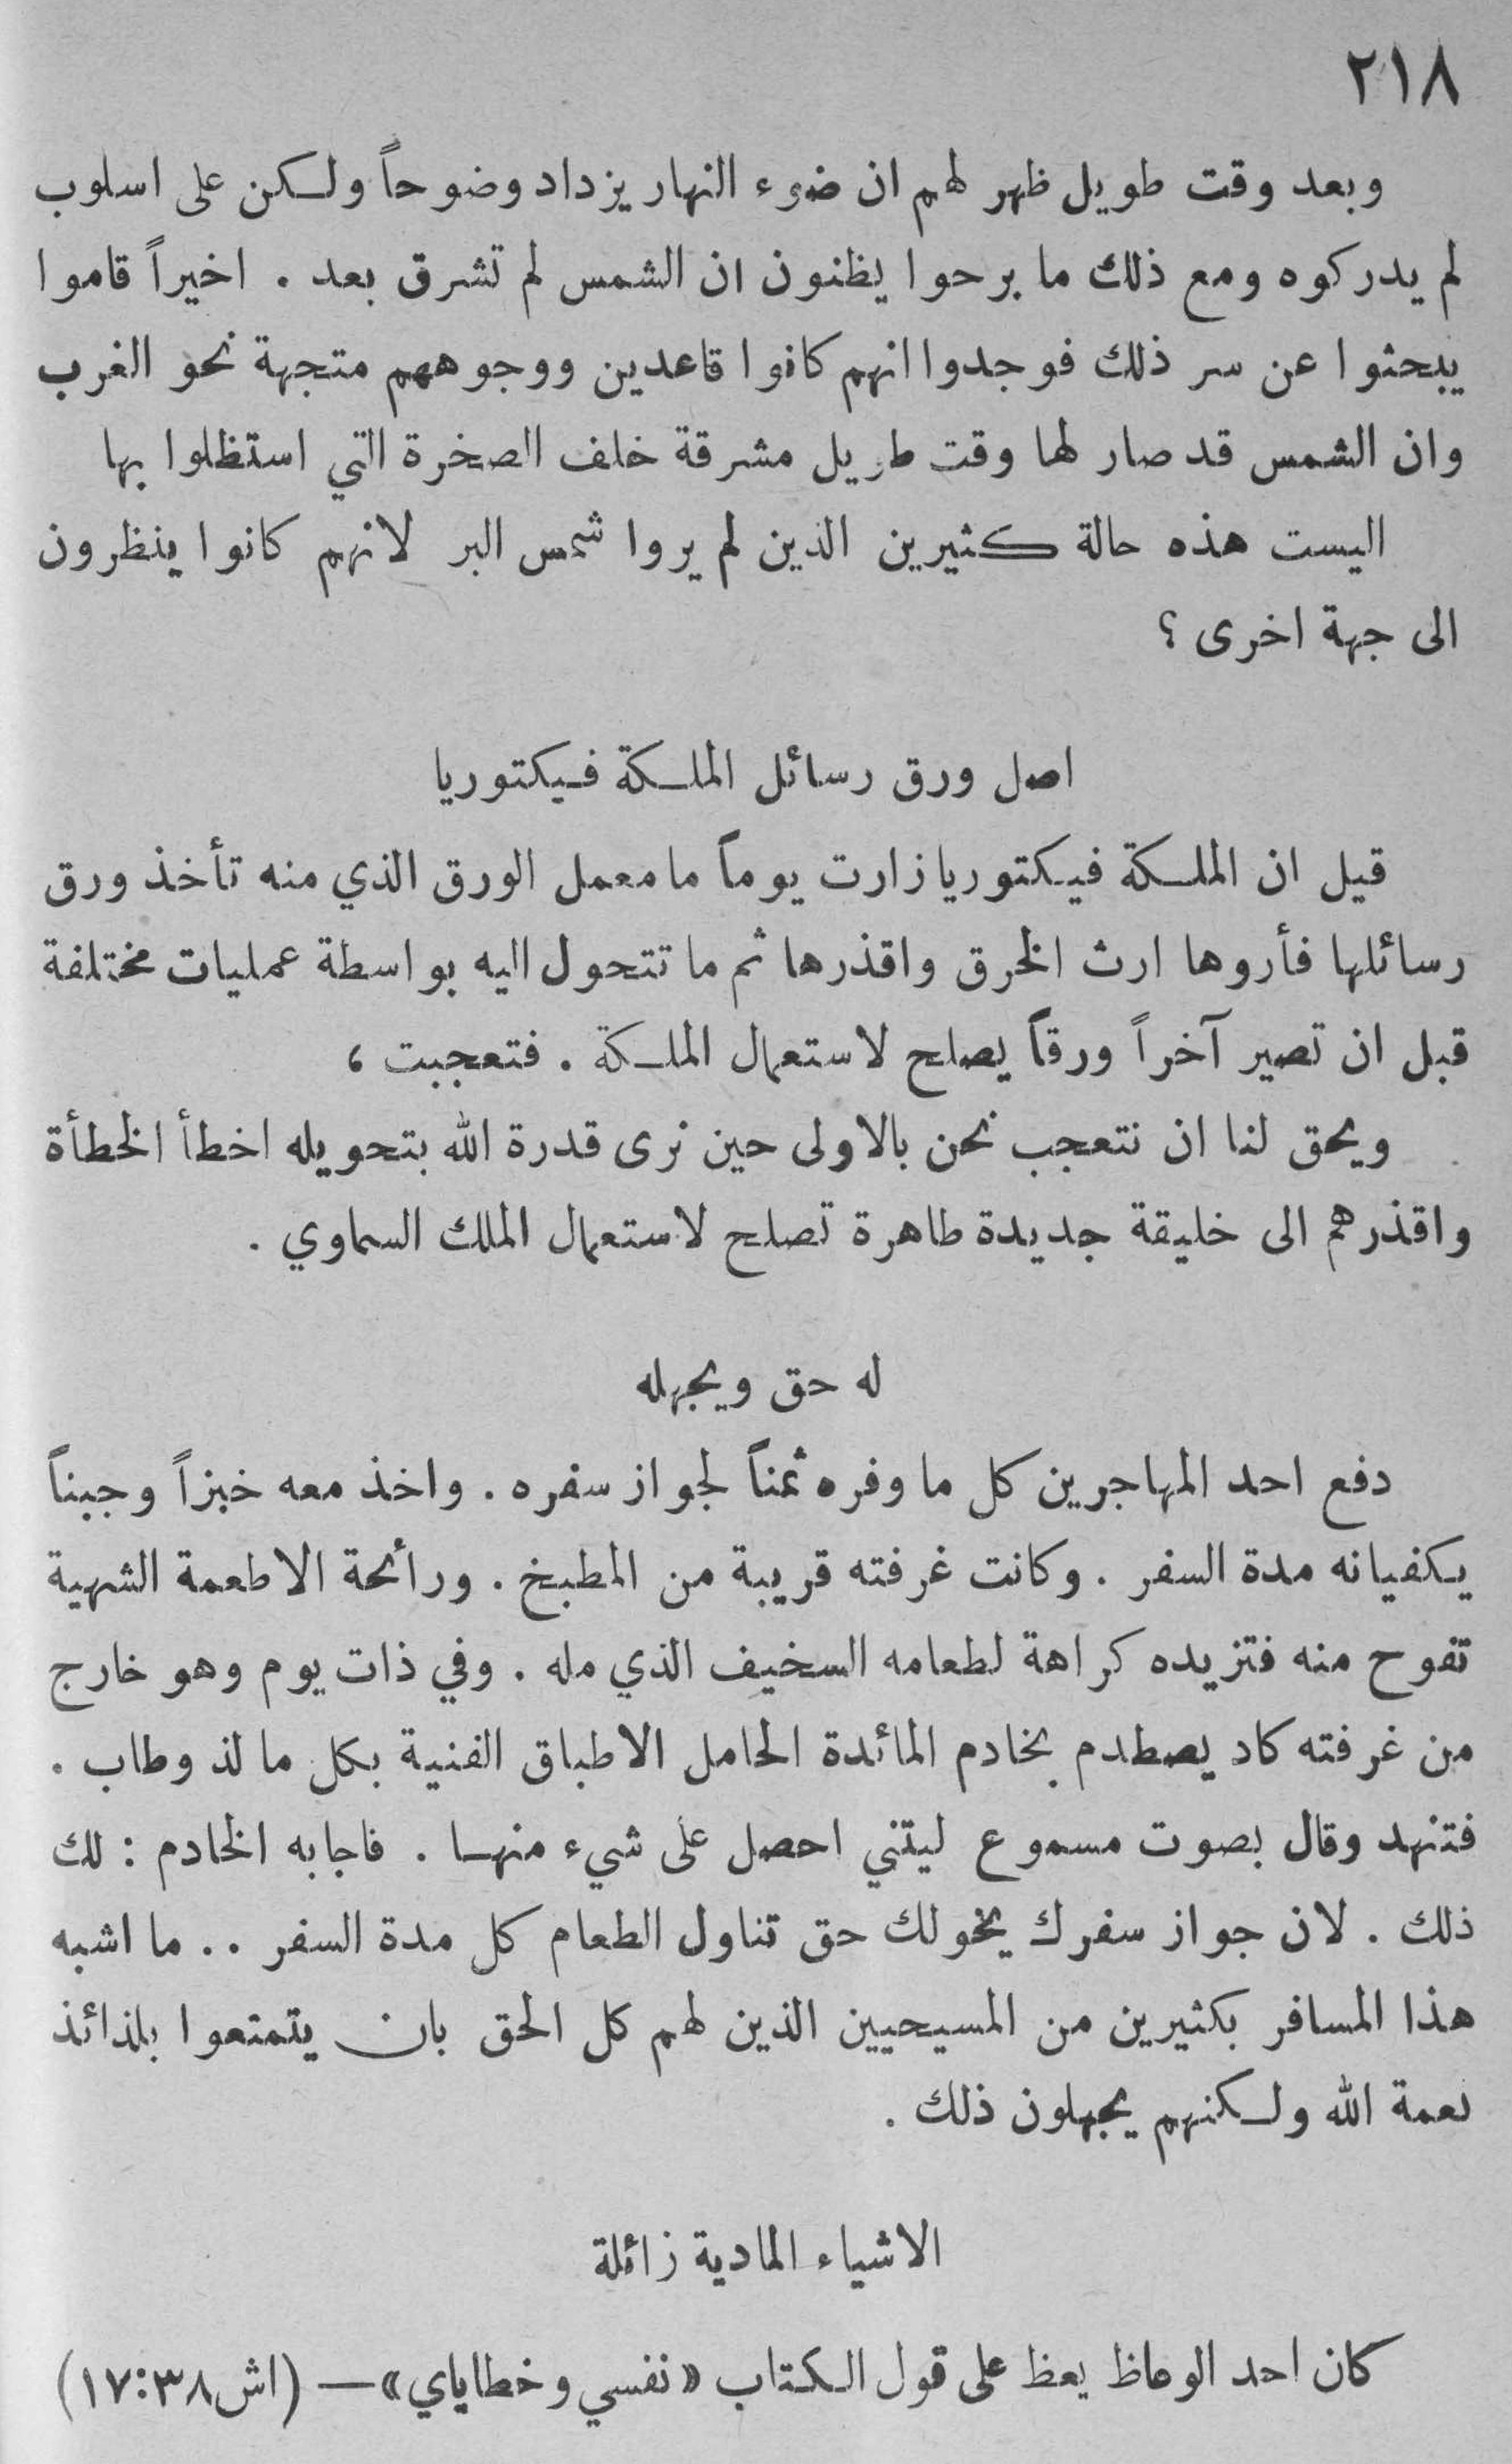 ٢١٨
وبعد وقت طويل ظهر لهم ان ضوء النهار يزداد وضوحاً ولكن على اسلوب
لم يدركوه ومع ذلك ما برحوا يظنون ان الشمس لم تشرق بعد . اخيراً قاموا
يبحثوا عن سر ذلك فوجدوا انهم كانوا قاعدين ووجوههم متجهة نحو الغرب
وان الشمس قد صار لها وقت طويل مشرقة خلف الصخرة التي استظلوا بها
اليست هذه حالة كثيرين الذين لم يروا شمس البر لانهم كانوا ينظرون
الى جهة اخرى ؟
اصل ورق رسائل الملكة فيكتوريا
قيل ان الملكة فيكتوريا زارت يوماً ما معمل الورق الذي منه تأخذ ورق
رسائلها فأروها ارث الخرق واقذرها ثم ما تتحول اليه بواسطة عمليات مختلفة
قبل ان تصير آخراً ورقاً يصلح لاستعمال الملكة . فتعجبت ،
ويحق لنا ان نتعجب نحن بالاولى حين نرى قدرة الله بتحويله اخطأ الخطأة
واقذرهم الى خليقة جديدة طاهرة تصلح لاستعمال الملك السماوي .
له حق ويجهله
دفع احد المهاجرين كل ما وفره ثمناً لجواز سفره . واخذ معه خبزاً وجبناً
يكفيانه مدة السفر . وكانت غرفته قريبة من المطبخ . ورائحة الاطعمة الشهية
تفوح منه فتزيده كراهة لطعامه السخيف الذي مله . وفي ذات يوم وهو خارج
من غرفته كاد يصطدم بخادم المائدة الحامل الاطباق الغنية بكل ما لذ وطاب .
فتنهد وقال بصوت مسموع ليتني احصل على شيء منها . فاجابه الخادم : لك
ذلك . لان جواز سفرك يخولك حق تناول الطعام كل مدة السفر .. ما اشبه
هذا المسافر بكثيرين من المسيحيين الذين لهم كل الحق بان يتمتعوا بلذائذ
نعمة الله ولكنهم يجهلون ذلك .
الاشياء المادية زائلة
كان احد الوعاظ يعظ على قول الكتاب «نفسي وخطاياي» — (اش ٣٨:١٧)